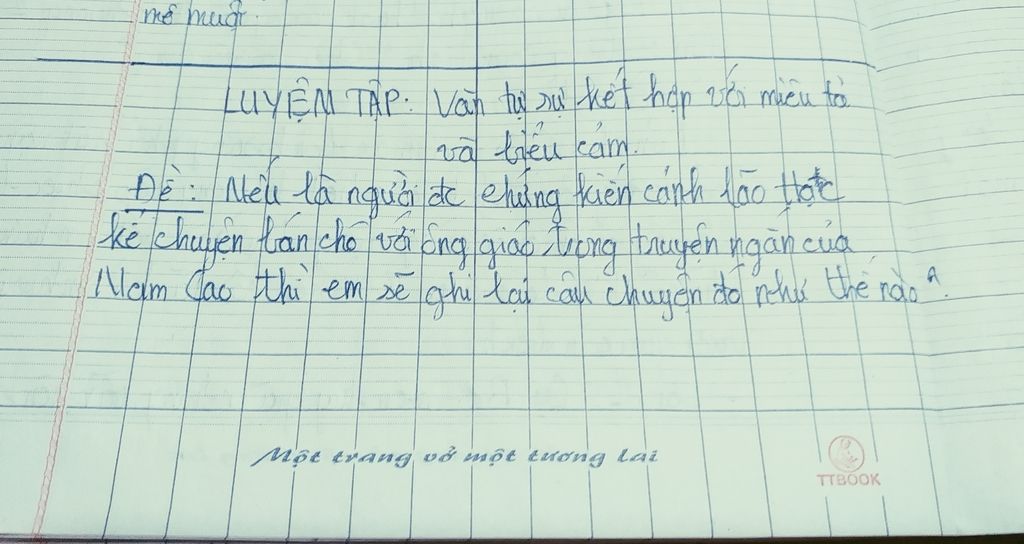 mê muội.
LUYỆN TẬP: Văn tự sự kết hợp với miêu tả
và biểu cảm.
Đề: Nếu là người đc chứng kiến cảnh lão Hạc
kể chuyện bán chó với ông giáo trong truyện ngắn của
Nam Cao thì em sẽ ghi lại câu chuyện đó như thế nào?
Một trang vở một tương lai
TTBOOK